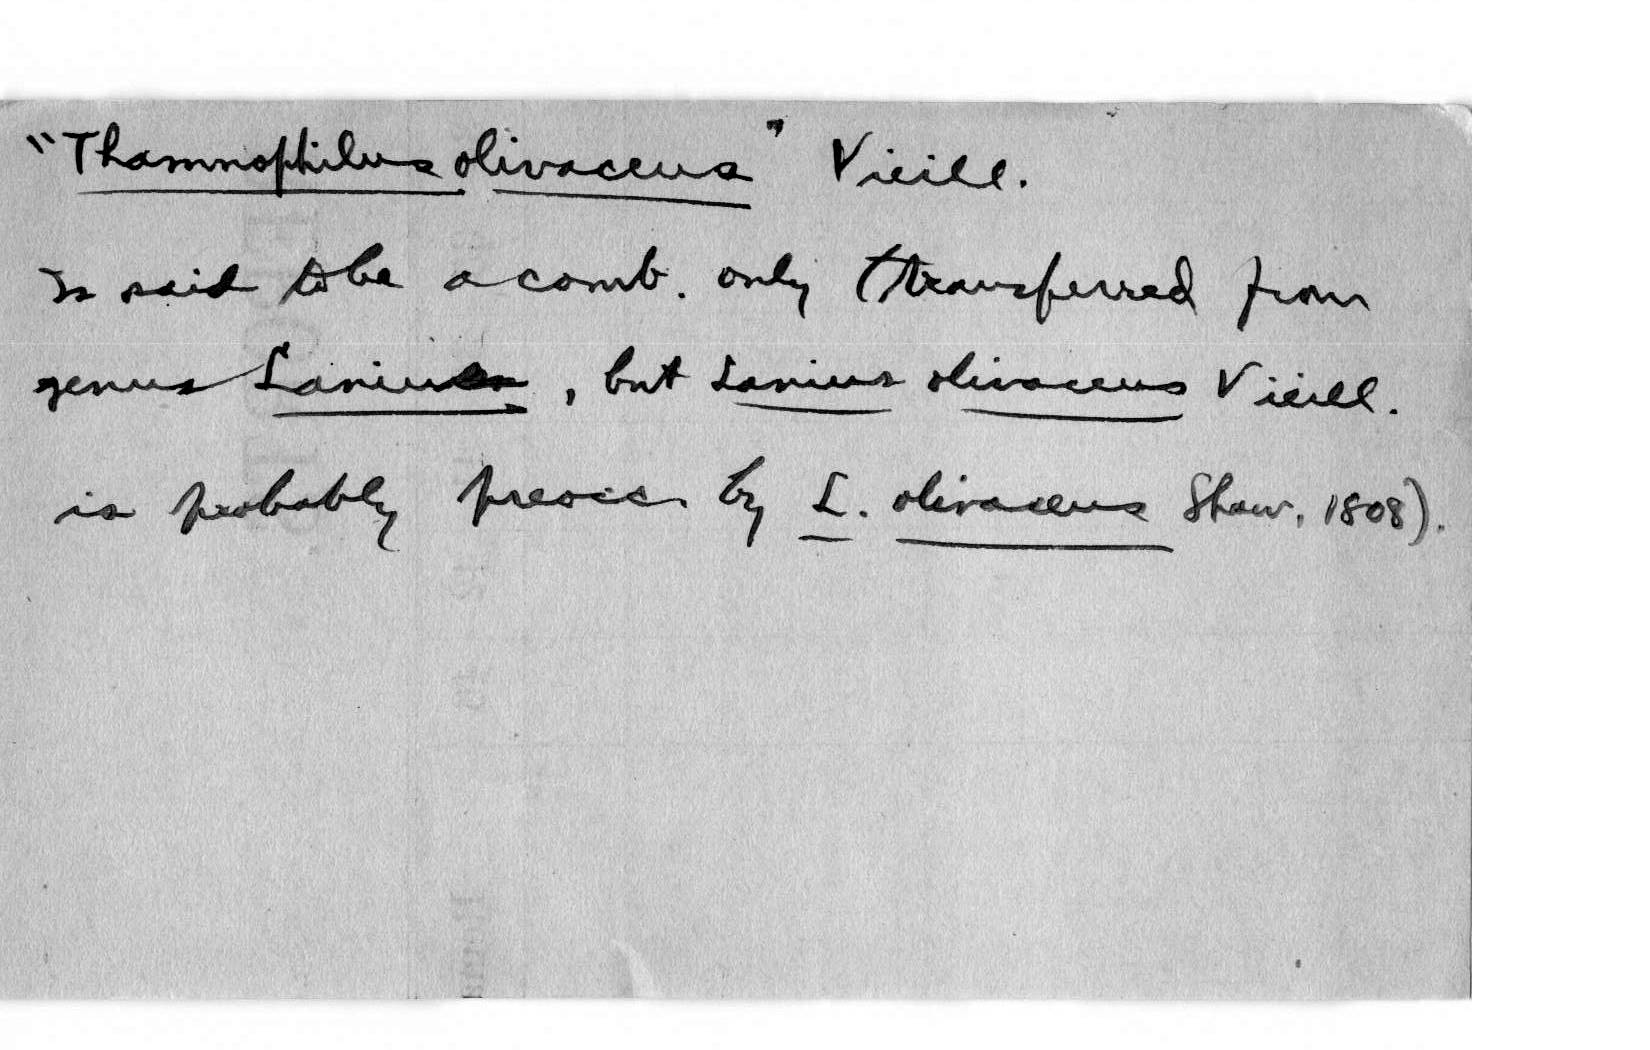 "Thamnophilus olivaceus" Vieill.
is said to be a comb. only (transferred from
genus Lanius, but Lanius olivaceus Vieill.
is probably preocc. by L. olivaceus Shaw, 1808).